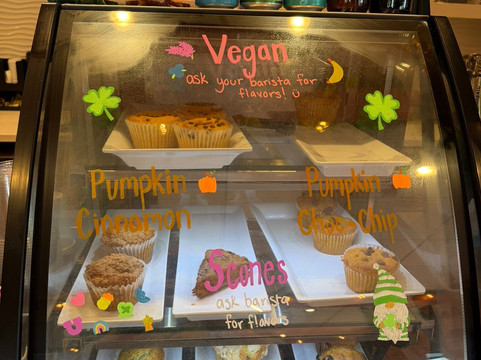 Vegan
ask your barista for
flavors!
Pumpkin
Cinnamon
Pumpkin
Choc Chip
Scones
ask barista
for flavors